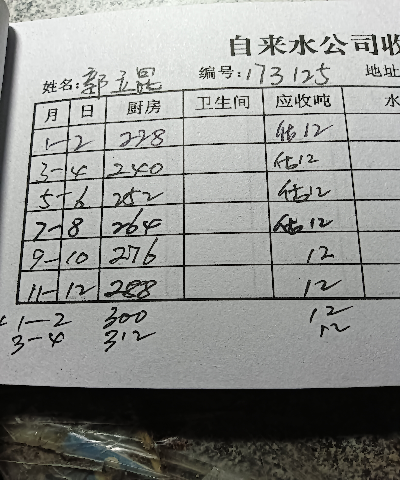 自来水公司收
姓名:郭立昆 编号:173125 地址
月 日 厨房 卫生间 应收吨 水
1-2 228 估12
3-4 240 估12
5-6 252 估12
7-8 264 估12
9-10 276 12
11-12 288 12
1-2 300 12
3-4 312 12